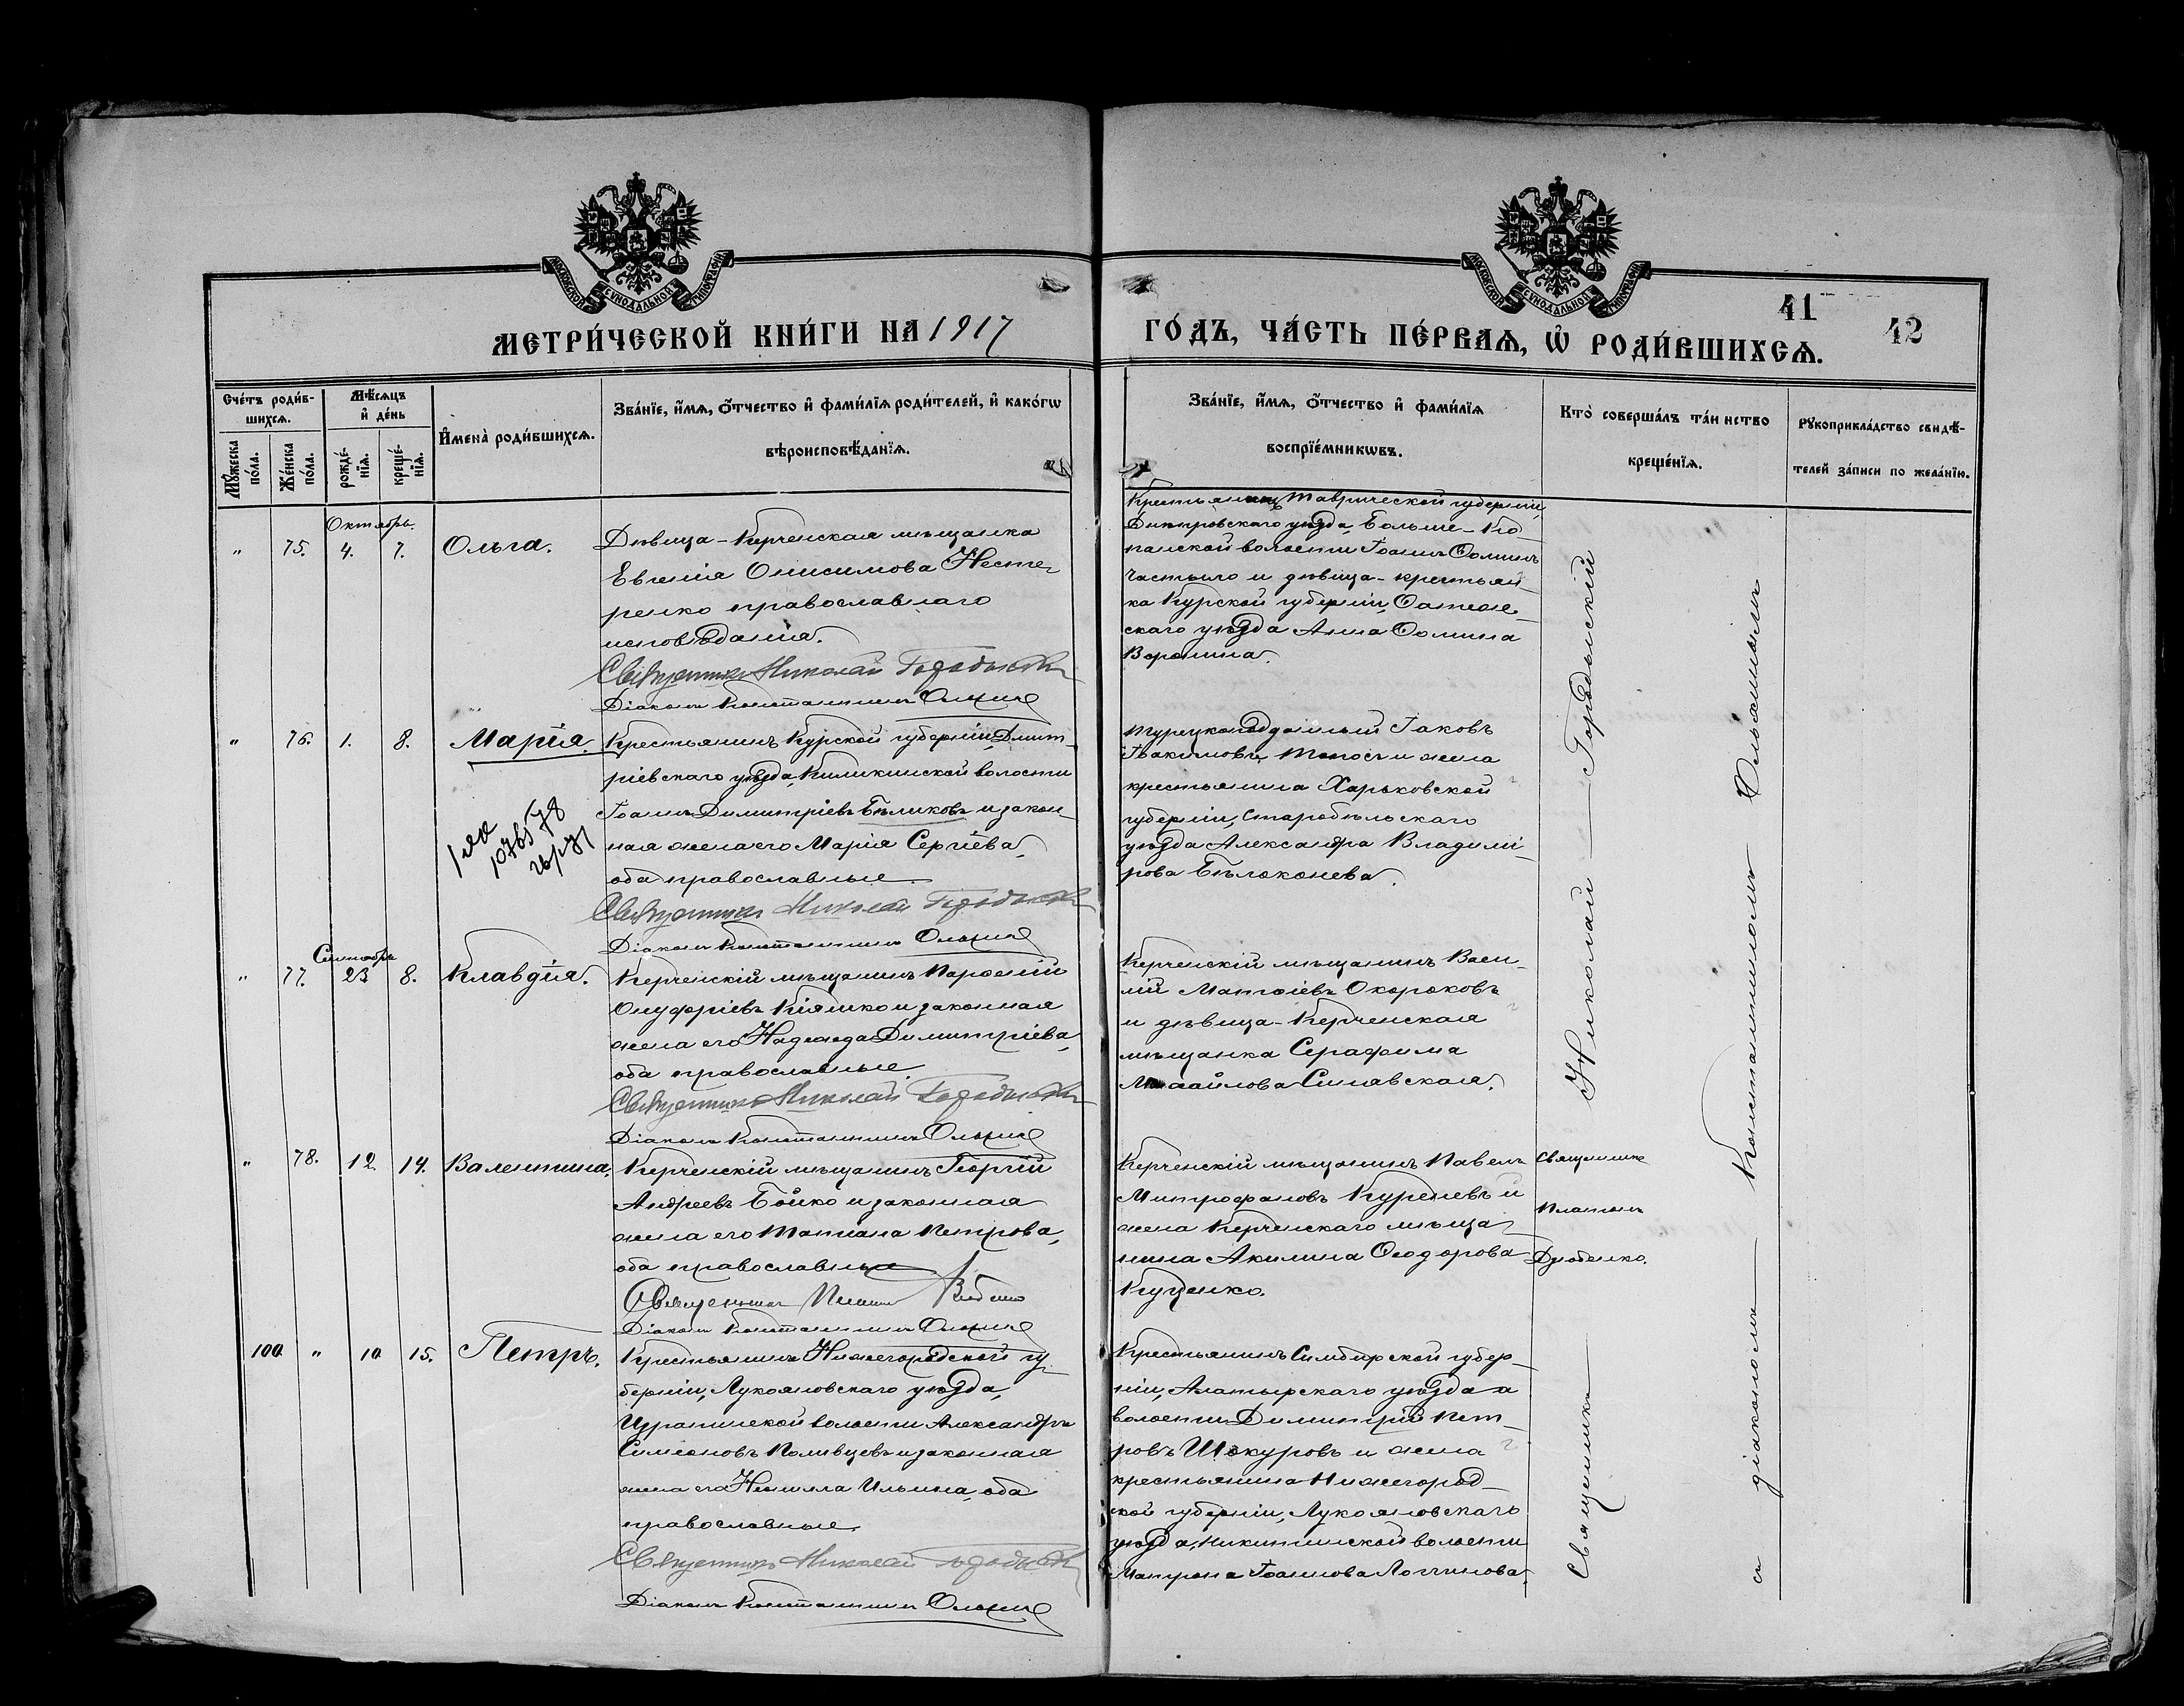 МЕТРИ́ЧЕСКОЙ КНИ́ГИ НА 1917
ГО́ДЪ, ЧА́СТЬ ПЕ́РВАѦ, Ѽ РОДИ́ВШИХСѦ.
41
42
Сче́тъ роди́в-
шихсѧ.
Мꙋ́жеска
по́ла.
Же́нска
по́ла.
Мѣ́сѧцъ
и҆ де́нь
рожде́-
нїѧ.
креще́-
нїѧ.
И҆мена̀ роди́вшихсѧ.
Зва́нїе, и҆́мѧ, ѻ҆́тчество и҆ фами́лїѧ роди́телей, и҆ како́гѡ
вѣроисповѣ́данїѧ.
Зва́нїе, и҆́мѧ, ѻ҆́тчество и҆ фами́лїѧ
воспрїе́мникѡвъ.
Кто̀ соверша́лъ та́инство
креще́нїѧ.
Рꙋкоприкла́дство свидѣ́-
телей за́писи по жела́нїю.
Октябрь.
" 75. 4. 7. Ольга.
Дѣвица-Керченская мѣщанка
Евгенія Онисимова Несте-
ренко православнаго
исповѣданія.
Священникъ Николай
Діаконъ Константинъ
Крестьянинъ Таврической губерніи,
Днѣпровскаго уѣзда, Больше-Ко-
панской волости Іоаннъ Ѳоминъ
и дѣвица-крестьян-
ка Курской губерніи,
скаго уѣзда Анна Ѳомина
Воронина.
" 76. 1. 8. Марія.
Крестьянинъ Курской губерніи, Дмит-
ріевскаго уѣзда, волости
Іоаннъ Димитріевъ Бѣликовъ и закон-
ная жена его Марія Сергіева,
оба православные.
Священникъ Николай
Діаконъ Константинъ
Турецкоподданный Іаковъ
Іоакимовъ и жена
крестьянина Харьковской
губерніи, Старобѣльскаго
уѣзда Александра Владимі-
рова Бѣлоконева.
Сентябрь
" 77. 23 8. Клавдія.
Керченскій мѣщанинъ Парѳеній
Онуфріевъ Кіяшко и законная
жена его Надежда Димитріева,
оба православные.
Священникъ Николай
Діаконъ Константинъ
Керченскій мѣщанинъ Васи-
лій Матѳіевъ Окороковъ
и дѣвица-Керченская
мѣщанка Серафима
Синявская.
" 78. 12. 14. Валентина.
Керченскій мѣщанинъ Георгій
Андреевъ Бойко и законная
жена его Татіана Петрова,
оба православные
Священникъ
Діаконъ Константинъ
Керченскій мѣщанинъ Павелъ
Митрофановъ и
жена Керченскаго мѣща-
нина Акилина Ѳеодорова
Куценко.
Священникъ
Платонъ
100. " 10. 15. Петръ.
Крестьянинъ Нижегородской гу-
берніи, Лукояновскаго уѣзда,
волости Александръ
Симеоновъ и законная
жена его Ильина, оба
православные.
Священникъ Николай
Діаконъ Константинъ
Крестьянинъ Симбирской губер-
ніи, Алатырскаго уѣзда
волости Димитрій Пет-
ровъ Шокуровъ и жена
крестьянина Нижегород-
ской губерніи, Лукояновскаго
уѣзда, Никитинской волости
Матрона Іоаннова Логгинова.
Священникъ Николай
съ діакономъ Константиномъ